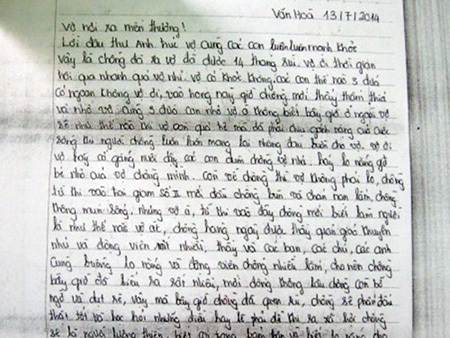 Văn Hoá 13/7/2014
Vợ nơi xa miền thương!
Lời đầu thư Anh chúc vợ cùng các con luôn luôn mạnh khỏe
Vậy là chồng đã xa vợ đã được 14 tháng rùi, vợ ơi thời gian
trôi qua nhanh quá vợ nhỉ. vợ có khỏe không, các con thế nào 3 đứa
có ngoan không vợ ơi, vào trong này giờ chồng mới thấy thấm thía
và nhớ vợ cùng 3 đứa con nhớ vợ ạ không biết bây giờ ở ngoài vợ
sẽ như thế nào khi vợ con quá bé mà đã phải chịu gánh nặng của cuộc
sống thì người chồng luôn luôn mang lại những đau buồn cho vợ. vợ ơi
vợ hãy cố gắng nuôi dậy các con dùm chồng vợ nhé. hãy lo nâng gia
bé nhỏ của vợ chồng mình. Còn về chồng thì vợ không phải lo, chồng
từ khi vào trại giam số II mới đầu chồng buồn và chán nản lắm, chồng
không muốn sống, nhưng vợ ạ, từ khi vào đây chồng mới biết làm người
là như thế nào vợ ạ, chồng hàng ngày được thầy quản giáo khuyên
nhủ và động viên rất nhiều, thầy và các bạn, các chú, các anh
cùng buồng lo nâng và động viên chồng nhiều lắm, cho nên chồng
bây giờ đỡ hiểu ra rất nhiều, mới đầu không lao động còn bỡ
ngỡ và dụt rè, vậy mà bây giờ chồng đã quen rùi, chồng sẽ phấn đấu
thật tốt và học hỏi những điều hay lẽ phải để khi ra xã hội chồng
sẽ là người lương thiện, biết